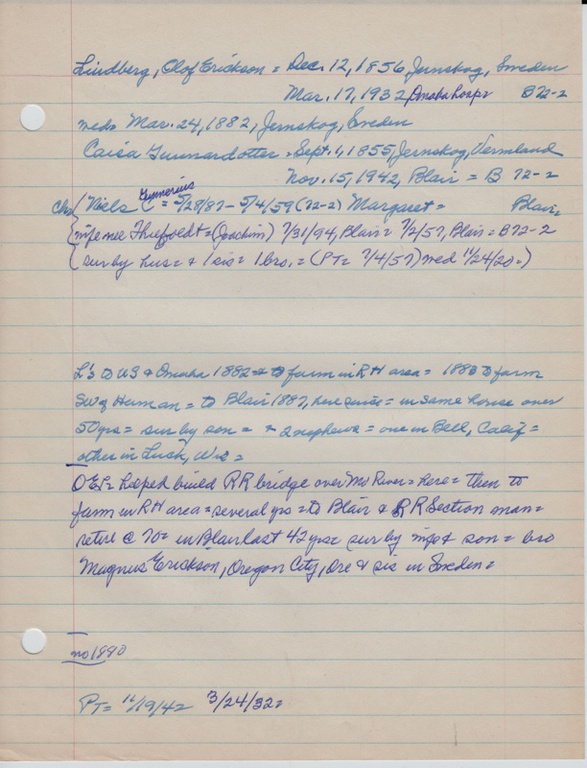 Lindberg, Olof Erickson = Dec. 12, 1856, Jernskog, Sweden
Mar. 17, 1932 Omaha Hosp= B 72-2
med= Mar. 24, 1882, Jernskog, Sweden
Caisa Gunnardotter = Sept. 1, 1855, Jernskog, Vermland
Nov. 15, 1942, Blair = B 72-2
Ch= ( Niels Gunnerius = 5/28/87 - 5/4/59 (72-2) Margaret = Blair=
(wife nee Thiefoldt = (Joachim) 7/31/94, Blair = 7/2/57, Blair = B 72-2
( sur by hus = + 1 sis = 1 bro. = (PT= 7/4/57) med 11/24/20=)
L's to US & Omaha 1882 = to farm in RH area = 1883 to farm
SW of Herman = to Blair 1887, here since = in same house over
50 yrs = sur by son = + 2 nephews = one in Bell, Calif =
other in Lusk,
OEL= helped build RR bridge over Mo River = here = then to
farm in RH area = several yrs = to Blair & RR Section man =
retire @ 70 = in Blair last 42 yrs = sur by wife & son = bro
Magnus Erickson, Oregon City, Ore & sis in Sweden =
no 1890
PT= 11/19/42 3/24/32=